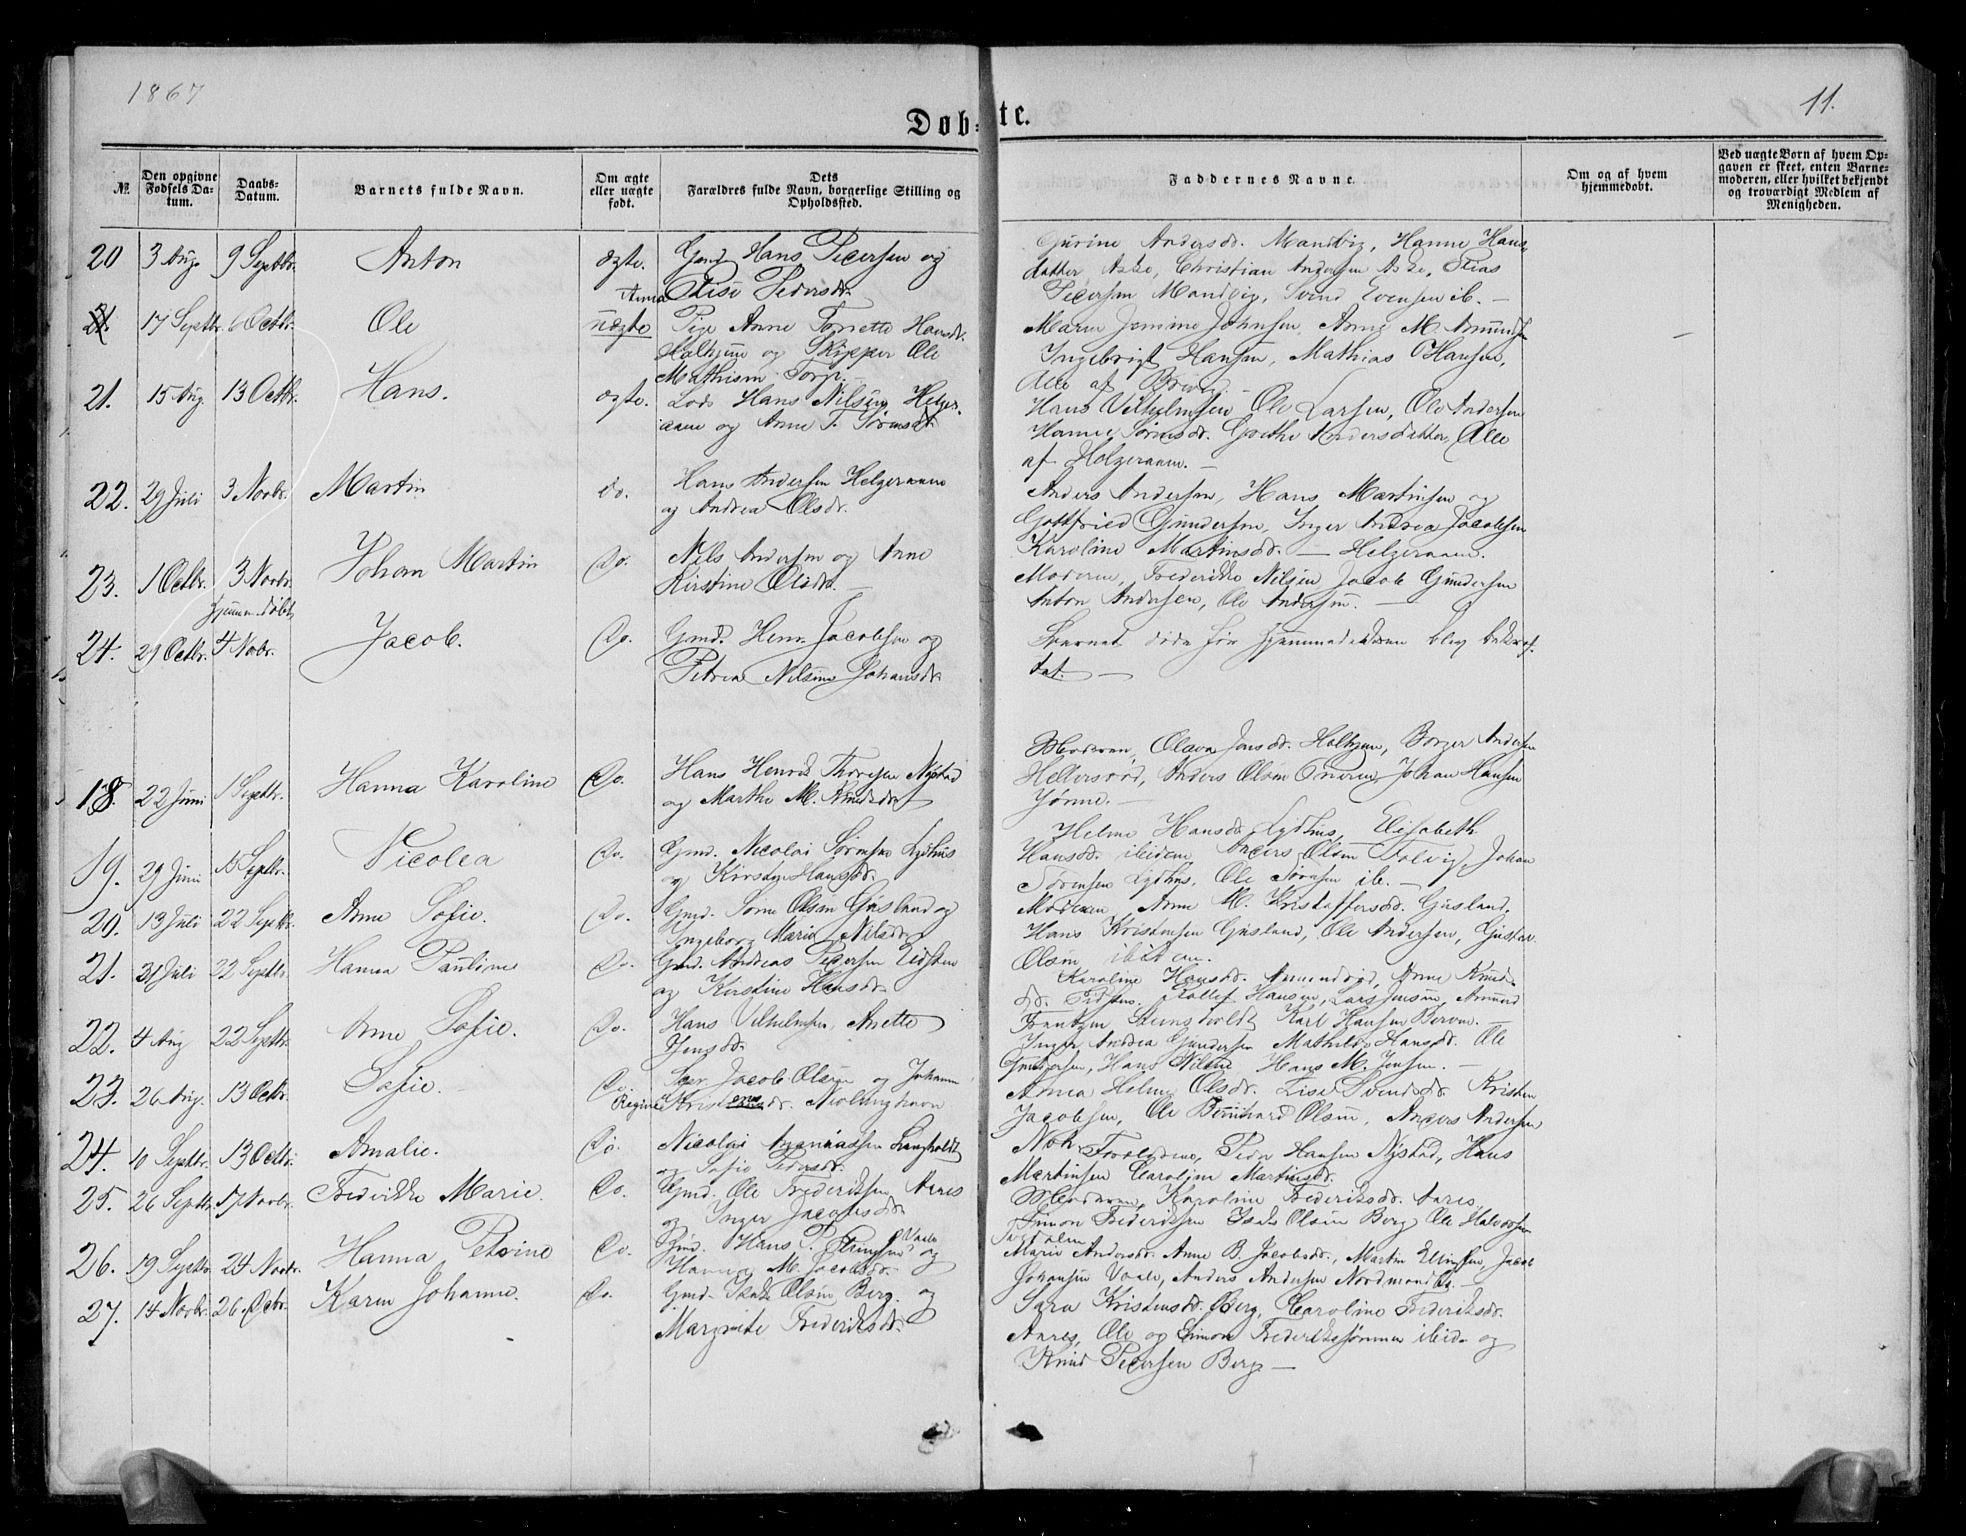 1867
11.
Døb-te.
№.
Den opgivne Fødsels Da-tum.
Daabs-Datum.
Barnets fulde Navn.
Om ægte eller uægte født.
Dets Forældres fulde Navn, borgerlige Stilling og Opholdssted.
Faddernes Navne.
Om og af hvem hjemmedøbt.
Ved uægte Børn af hvem Op-gaven er skeet, enten Barne-moderen, eller hvilket bekjendt og troværdigt Medlem af Menigheden.
20 3 Aug. 9 Septbr. Anton ægte. Gmd. Hans Pedersen og
Anna Elise Pedersdr.
Gurine Andersdr. Mandvig, Hanne Hans-
datter Aske, Christian Andersen Aske, Elias
Pedersen Mandvig, Svend Evensen ib. —
21. 17 Septbr. 6 Octbr. Ole uægte Pige Anne Tonette Hansdr.
Holtjem og Skipper Ole
Mathisen Torp. —
Maren Jensine Johnsen, Anne M. Amundsen
Ingebrigt Hansen, Mathias Hansen,
Alle af Brevig. —
21. 15 Aug. 13 Octbr. Hans. ægte. Lods Hans Nilsen Helger-
aaen og Anne T. Sørensdr.
Hans Vilhelmsen, Ole Larsen, Ole Andersen
Hanne Sørensdr. Grethe Andersdatter, Alle
af Helgeraaen. —
22. 29 Juli 3 Novbr. Martin do. Hans Andersen Helgeraaen
og Andrea Olsdr.
Anders Andersen, Hans Martinsen og
Gottfried Gundersen, Inger Andrea Jacobsen
Karoline Martinsdr. — Helgeraaen.
23. 1 Octbr. 3 Novbr. Johan Martin Do. Nils Andersen og Anne
Kirstine Olsdr. —
Moderen, Frederikke Nilsen, Jacob Gundersen
Anton Andersen, Ole Andersen. —
hjemmedøbt
24. 29 Octbr. 4 Novbr. Jacob. Do. Gmd. Henr. Jacobsen og
Petrea Nilsine Johansdr.
Barnet døde før Hjemmedaaben blev bekræf-
tet. —
18. 22 Juni 1 Septbr. Hanna Karoline Do. Hans Henrik Thoresen Nystad
og Marthe M. Knudsdr.
Moderen, Olava Jonsdr. Holtjem, Borger Andersen
Anders Olsen Johan Hansen
19. 29 Juni 15 Septbr. Nicolea Do. Gmd. Nicolai Sørensen Lydhus
og Kirsten Hansdr.
Helene Hansdr. Lydhus, Elisabeth
Hansdr. ibidem Anders Olsen Johan
Sørensen Lydhus, Ole Sørensen ib. —
20. 13 Juli 22 Septbr. Anne Sofie. Do. Gmd. Sørne Olsen Gusland og
Ingeborg Marie Nilsdr.
Moderen Anne M. Kristoffersdr. Gusland,
Hans Kristensen Gusland, Ole Andersen, Gustav
Olsen ibidem.
21. 31 Juli 22 Septbr. Hanna Pauline Do. Gmd. Andreas Pedersen Eidsten
og Kirstine Hansdr.
Karoline Hansdr. Anne Knuds-
dr. Eidsten. Rollef Hansen, Lars Jensen, Amund
22. 4 Aug 22 Septbr. Anne Sofie. Do. Hans Vilhelmsen, Anette
Jensdr.
Frantzen Langholdt Karl Hansen Berven. —
Inger Andrea Gundersen Mathilde Hansdr. Ole
Gundersen, Hans Nilsen Hans M. Jensen. —
23. 26 Aug. 13 Octbr. Sofie. Do. Jacob Olsen og Johanne
Regine Kristensdr. Nevlunghavn
Anna Helene Olsdr. Lise Svendsdr. Kristen
Jacobsen, Ole Bernhard Olsen, Anders Andersen
24. 10 Septbr. 13 Octbr. Amalie. Do. Nicolai Ananiassen Langholdt
og Sofie Pedersdr.
Forældrene, Peder Hansen Nystad, Hans
Martinsen Caroline Martinsdr.
25. 26 Septbr. 17 Novbr. Frederikke Marie. Do. Gmd. Ole Frederiksen Anres
og Inger Jacobsdr.
Moderen, Karoline Frederiksdr. Anres,
Simon Frederiksen Isak Olsen Berg Ole Halvorsen
26. 19 Septbr. 24 Novbr. Hanna Petrine Do. Gmd. Hans P. Vaale og
Hanna M. Jacobsdr.
Marie Andersdr. Anne B. Jacobsdr., Martin Ellingsen, Jacob
Johansen Vaale, Anders Andersen —
27. 14 Novbr. 26. Decbr. Karen Johanne. Do. Gmd. Isak Olsen Berg. og
Margrete Frederiksdr.
Sara Kristensdr. Berg, Caroline Frederiksdr.
Anres, Ole og Simon Frederikssønner ibid. og
Knud Pedersen Berg —